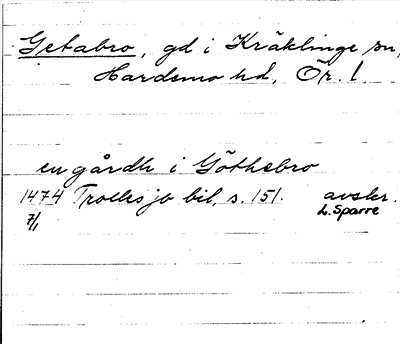 Getabro, gd i Kräklinge sn,
Hardemo hd, Ör. l.
en gårdh i Göthebro
1474 Trollesjö bil, s. 151. avskr.
7/1 L. Sparre